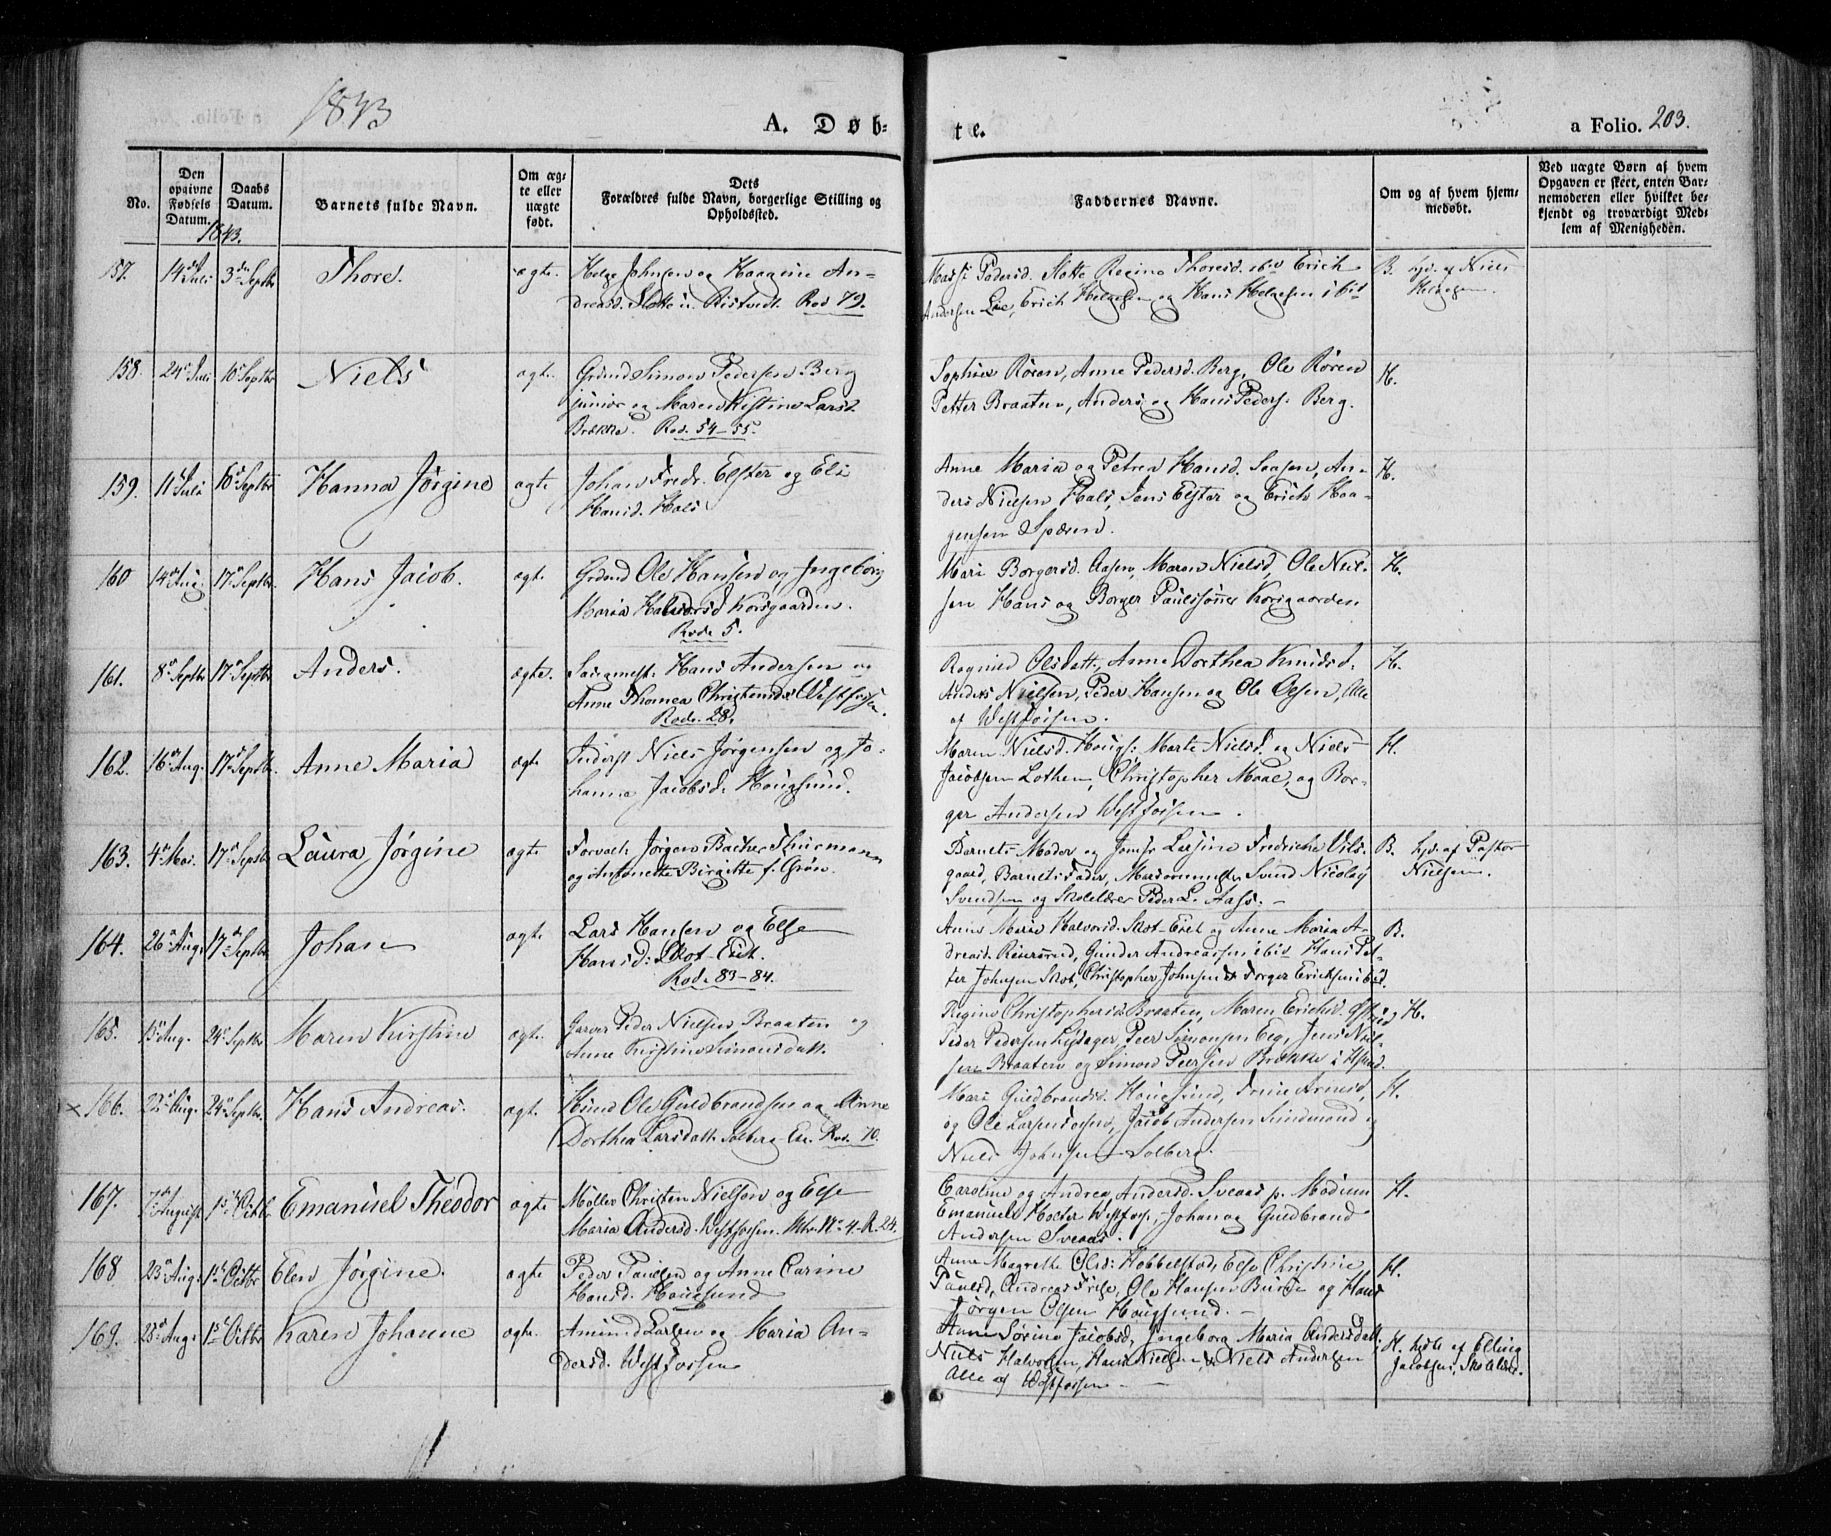 1843
A. Døb-
te.
a Folio. 203.
No.
Den
opgivne
Fødsels
Datum.
Daabs
Datum.
1843.
Barnets fulde Navn.
Om æg-
te eller
uægte
født.
Dets
Forældres fulde Navn, borgerlige Stilling og
Opholdssted.
Faddernes Navne.
Om og af hvem hjem-
medøbt.
Ved uægte Børn af hvem
Opgaven er skeet, enten Bar-
nemoderen eller hvilket be-
kjendt og troværdigt Med-
lem af Menigheden.
157. 14 Juli 3 Septbr Thore. ægte. Helge Johnsen og Haagine An-
dreasd. Slotte Rode 79.
Pedersd. Slotte Regine Thoresd. ibid Erich
Andersen Lie, Erich Helgesen og Hans Helgesen ibid
B. hjd. af Niels
Helgesen
158. 24 Juli 10 Septbr Niels ægte. Grdmd Simon Pedersen Berg
junior og Maren Kistine Larsd.
Brække. Rod. 54-55.
Sophie Røren, Anne Pedersd. Berg, Ole Røren
Petter Braaten, Anders og Hans Peders: Berg.
H.
159. 11 Juli 10 Septbr Hanna Jörgine ægte Johan Fredr. Elster og Eli
Hansd. Hals
Anne Maria og Petrea Hansd. An-
ders Nielsen Hals, Jens Elster og Erich Haa-
gensen
H.
160 14 Aug. 17 Septbr. Hans Jacob. ægte Grdmd Ole Hansen og Ingeborg
Maria Halvorsd Korsgaarden.
Rode 5.
Mari Borgersd. Aasen, Maren Nielsd, Ole Niel-
sen Hans og Borger Paulssønner Korsgaarden
H.
161. 8 Septbr 17 Septbr Anders. ægte. Hans Andersen og
Anne Thomea Christensd Westfossen.
Rode. 28.
Ragnild Olsdatt., Anne Dorthea Knudsd.
Anders Nielsen, Peder Hansen og Ole Olsen, Alle
af Westfossen.
H.
162. 16 Aug. 17 Septbr. Anne Maria ægte Inderst Niels Jørgensen og Jo-
hanna Jacobsd. Hougsund.
Maren Nielsd. Hougs: Marte Nielsd. og Niels
Jacobsen Lothen, Christopher Moae, og Bor-
ger Andersen Westfossen.
H.
163. 4 Mai. 17 Septbr Laura Jørgine ægte Forvalt. Jørgen Backer Thurmann
og Antonette Birgitte f. Grøn.
Barnets Moder og Jomfr Larsine Fredrikke Vils-
gaard, Barnets Fader, Svend Nicolay
Svendsen og Skolelærer Peder L. Aass. -
B. hjd. af Pastor
Nielsen.
164. 26 Aug. 17 Septbr Johan ægte Lars Hansen og Else
Hansd: Skot-Eiet.
Rode 83-84.
Anne Marie Halvorsd. Skot-Eiet og Anne Maria A-
dreasd. Gunder Andreassen ibid Hans Pet-
ter Johnsen Skot, Christopher Johnsen & Torger Ericksen ibid.
B.
165. 15 Aug. 24 Septbr Maren Kirstine ægte. Garver Peder Nielsen Braaten og
Anne Kirstine Simonsdatt.
Regine Christophersd. Braaten, Maren Erichsd.
Peder Pedersen Peer Simonsen Eeg, Jens Niel-
sen Braaten og Simon Peersen Brække
H.
× 166. 22 Aug. 24 Septbr Hans Andreas. ægte. Hsmd Ole Guldbrandsen og Anne
Dorthea Larsdatt. Solberg-Eie. Rod. 70.
Mari Guldbrandsd. Hougsund,
og Ole Larsen Fossen, Jacob Andersen og
Niels Johnsen Solberg.
H.
167. 7 August 1 Octbr Emanuel Theodor ægte Møller Christen Nielsen og Else
Maria Andersd. Westfossen. Mtr. No 4. R. 24.
Caroline og Andrea Andersd. Sveaas p. Modum
Emanuel Holter Westfoss, Johan og Guldbrand
Andersen Sveaas.
H.
168 23 Aug. 1 Octbr Elen Jørgine. ægte Peder Paulsen og Anne Carine
Hansd. Hougsund
Anne Magrethe Olsd: Hobbelstad, Else Christine
Paulsd, Andreas Friise, Ole Hansen og Hans
Jørgen Olsen Hougsund. -
H.
169. 28 Aug. 1 Octbr Karen Johanne ægte. Amund Larsen og Maria An-
dersd. Westfossen
Anne Sørine Jacobsd, Ingeborg Maria Andersdatt.
Niels Halvorsen, Hans Nielsen, & Niels Andersen
Alle af Westfossen -
H. hjdt. af Elling
Jacobsen, Skolelær.